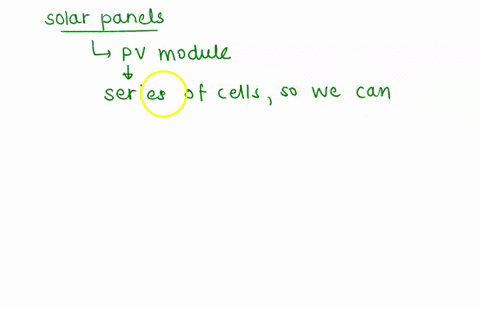 solar panels
↳ PV module
↓
series of cells, so we can